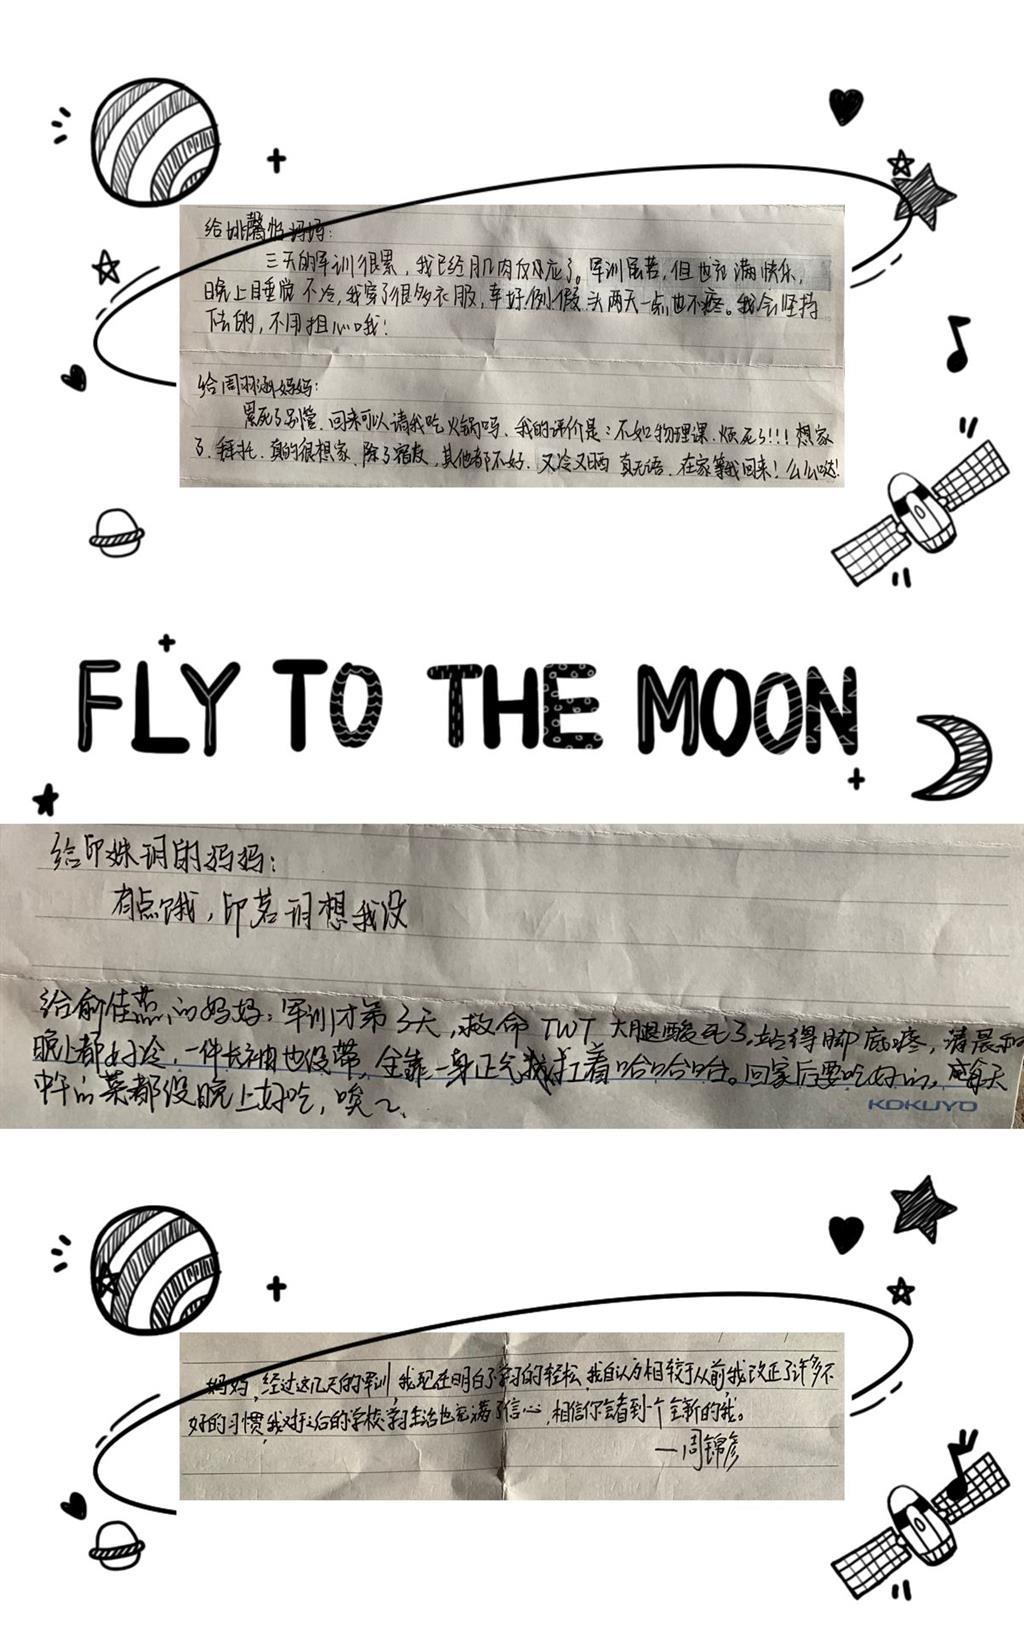 给姚馨怡妈妈:
三天的军训很累,我已经肌肉反应了。军训虽苦,但也充满快乐,
晚上睡觉不冷,我穿了很多衣服,幸好例假头两天一点也不疼。我会坚持
下去的,不用担心哦!
给周羽涵妈妈:
累死了别管.回来可以请我吃火锅吗、我的评价是:不如物理课.烦死了!!!想家
了.拜托.真的很想家.除了宿友,其他都不好.又冷又晒真无语.在家等我回来!么么哒!
FLY TO THE MOON
给印姝玥的妈妈:
有点饿,印茗玥想我没
给俞佳燕的妈妈:军训才第3天,救命TWT大腿酸死了,站得脚底疼,清晨和
晚上都好冷,一件长袖也没带,全靠一身正气我扛着哈哈哈。回家后要吃好的,每天
中午的菜都没晚上好吃,唉~.
KOKUYO
妈妈,经过这几天的军训,我现在明白了学习的轻松,我自认为相较于从前我改正了许多不
好的习惯,我对之后的学校学习生活也充满了信心,相信你会看到一个全新的我。
—周锦彦